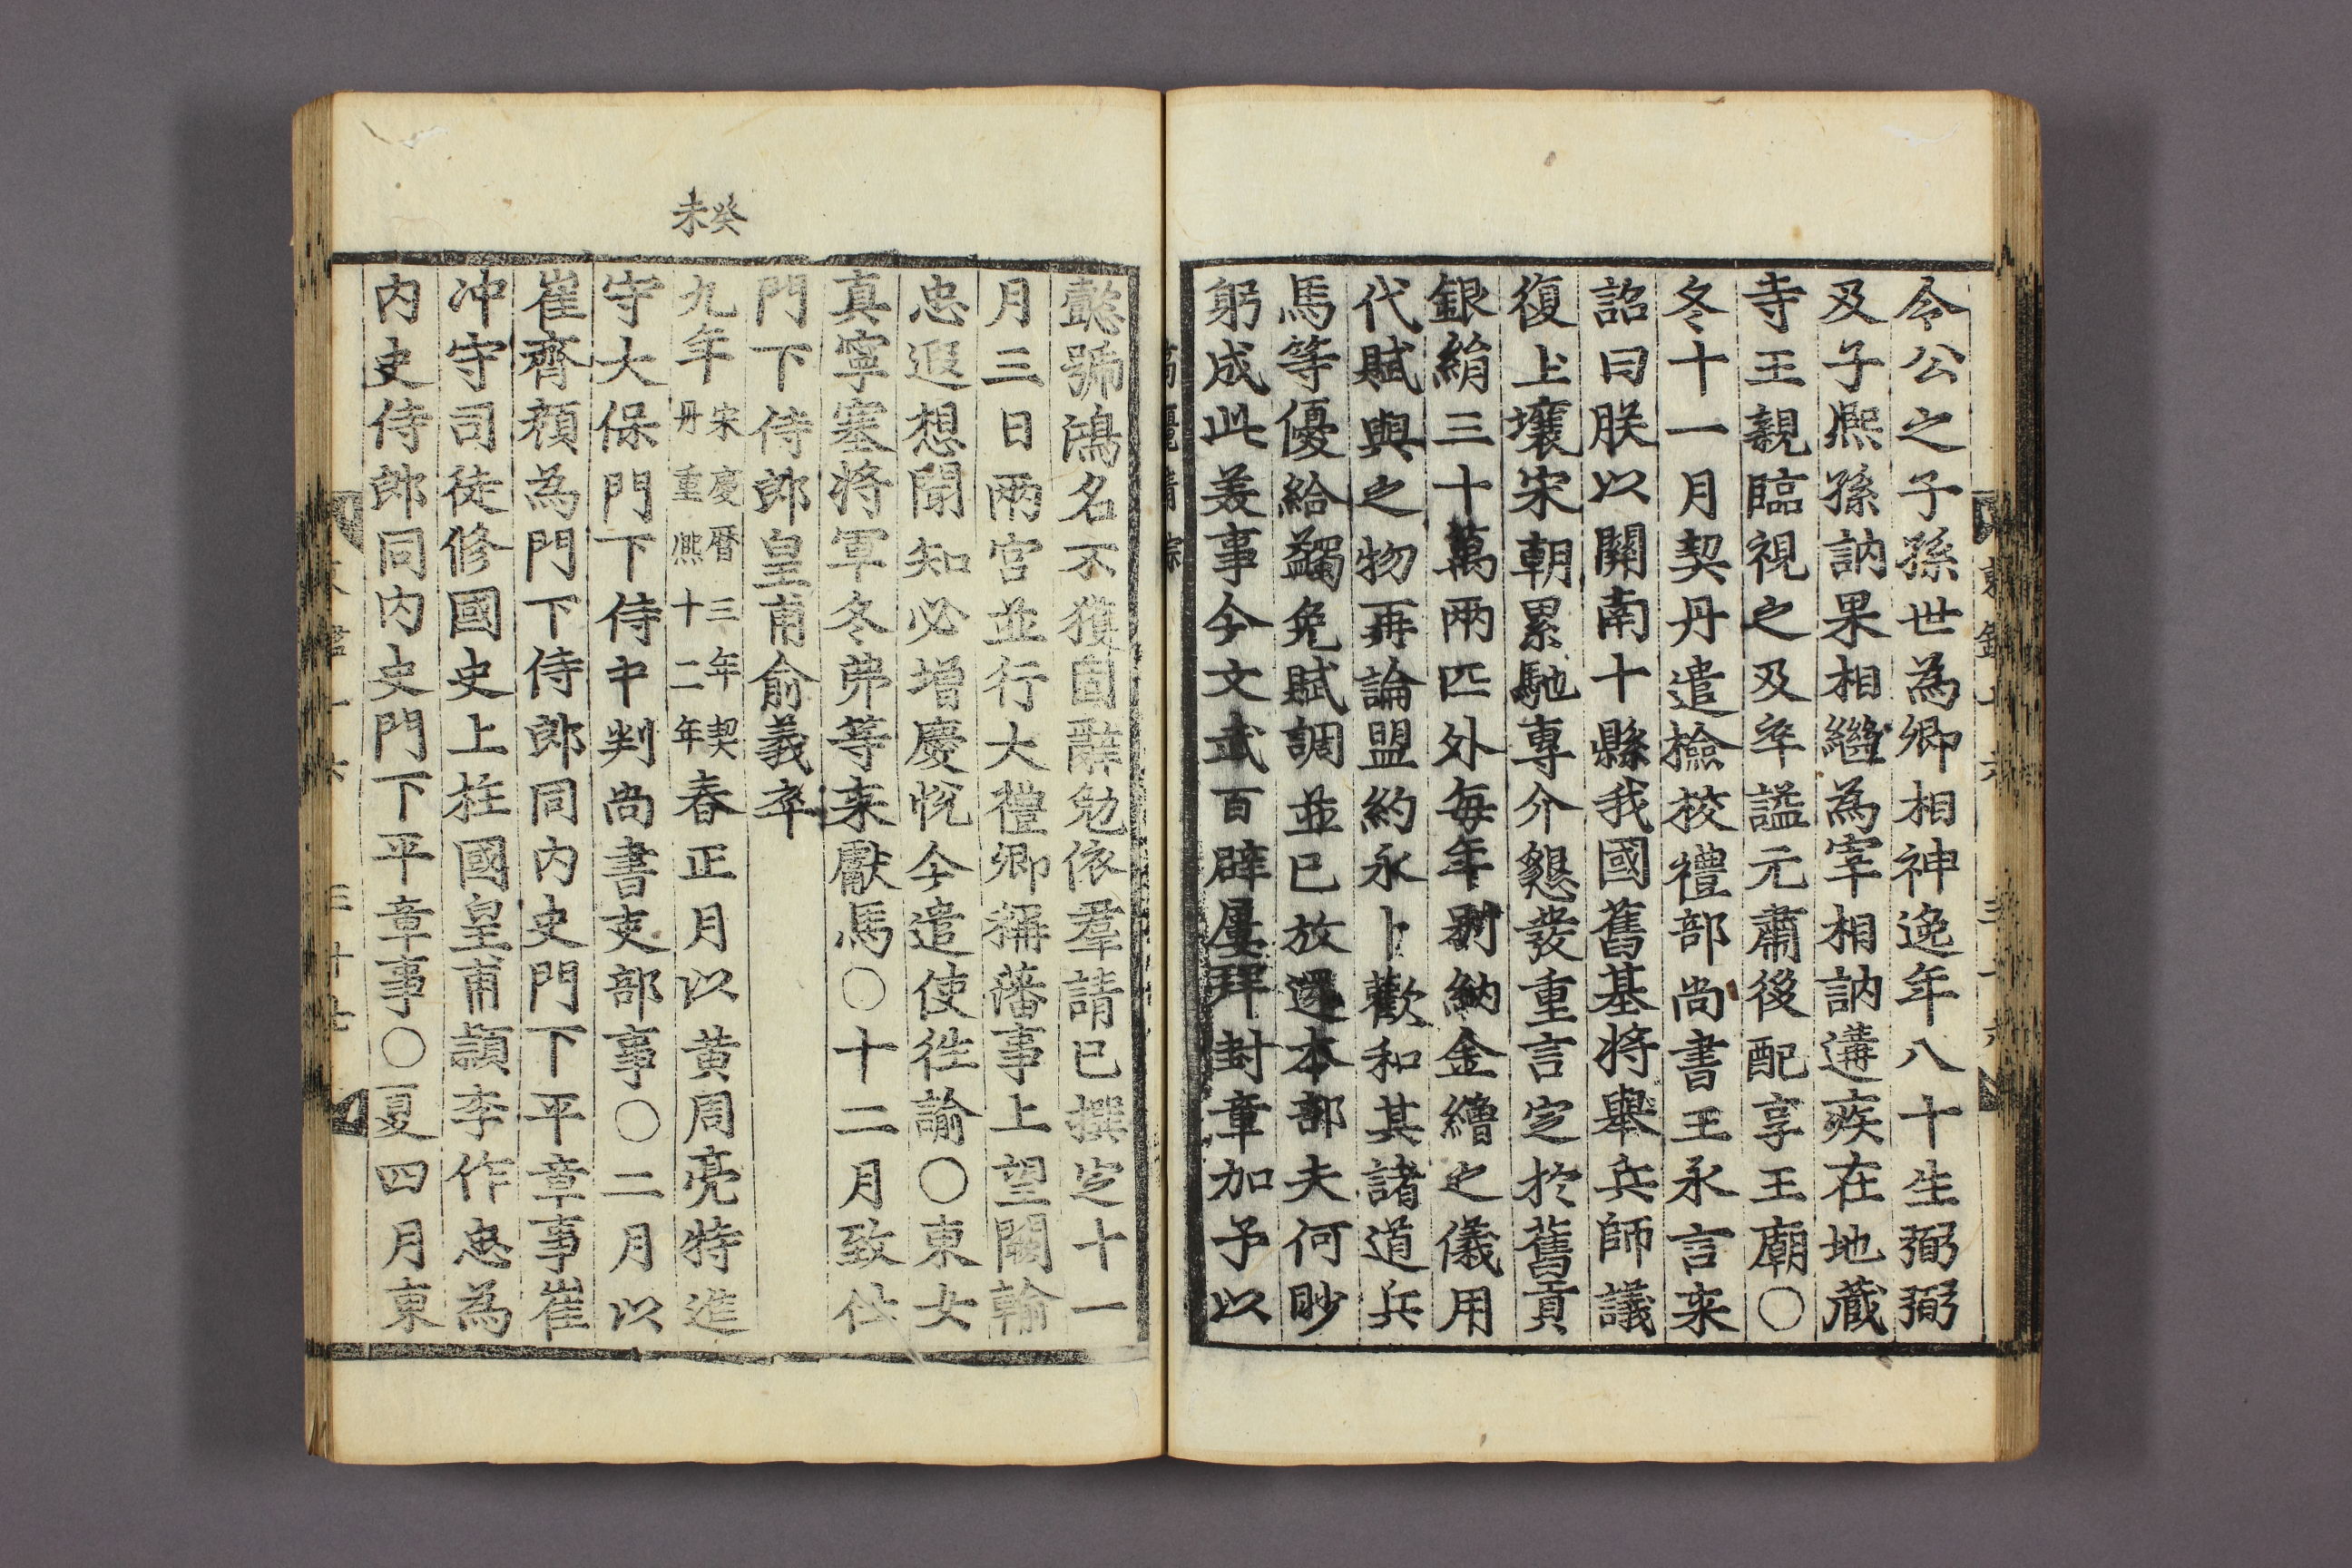 令公之子孫世為卿相神逸年八十生弼弼
及子熙孫訥果相繼為宰相訥遘疾在地藏
寺王親臨視之及卒諡元肅後配享王廟〇
冬十一月契丹遣撿校禮部尚書王永言来
詔曰朕以關南十縣我國舊基將舉兵師議
復上壤宋朝累馳專介懇發重言定於舊貢
銀絹三十萬兩匹外每年别納金繒之儀用
代賦與之物再論盟約永卜歡和其諸道兵
馬等優給蠲免賦調並已放還本部夫何眇
躬成此羙事今文武百辟屢拜封章加予以
懿號鴻名不獲固辭勉依羣請已撰定十一
月三日兩宫並行大禮卿稱藩事上望闕輸
忠遐想聞知必增慶悅今遣使徃諭〇東女
真寧塞将軍冬弗等来獻馬〇十二月致仕
門下侍郎皇甫俞義卒
癸未
九年宋慶曆三年契丹重熙十二年春正月以黄周亮特進
守大保門下侍中判尚書吏部事〇二月以
崔齊顏為門下侍郎同内史門下平章事崔
冲守司徒修國史上柱國皇甫穎李作忠為
内史侍郎同内史門下平章事〇夏四月東